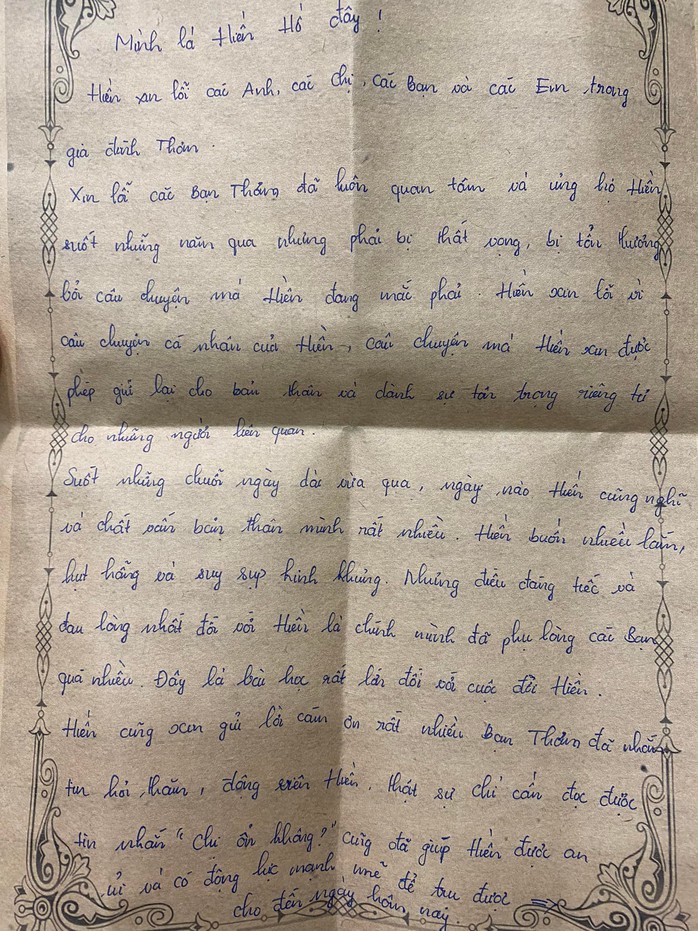 Mình là Hiền Hồ đây!
Hiền xin lỗi các Anh, các chị, các Bạn và các Em trong
gia đình Thơm.
Xin lỗi các Bạn Thơm đã luôn quan tâm và ủng hộ Hiền
suốt những năm qua nhưng phải bị thất vọng, bị tổn thương
bởi câu chuyện mà Hiền đang mắc phải. Hiền xin lỗi vì
câu chuyện cá nhân của Hiền, câu chuyện mà Hiền xin được
phép giữ lại cho bản thân và dành sự tôn trọng riêng tư
cho những người liên quan.
Suốt những chuỗi ngày dài vừa qua, ngày nào Hiền cũng nghĩ
và chất vấn bản thân mình rất nhiều. Hiền buồn nhiều lắm,
hụt hẫng và suy sụp kinh khủng. Những điều đáng tiếc và
đau lòng nhất đối với Hiền là chính mình đã phụ lòng các Bạn
quá nhiều. Đây là bài học rất lớn đối với cuộc đời Hiền.
Hiền cũng xin gửi lời cảm ơn rất nhiều Bạn Thơm đã nhắn
tin hỏi thăm, động viên Hiền, thật sự chỉ cần đọc được
tin nhắn "Chị ổn không?" cũng đã giúp Hiền được an
ủi và có động lực mạnh mẽ để trụ được
cho đến ngày hôm nay.